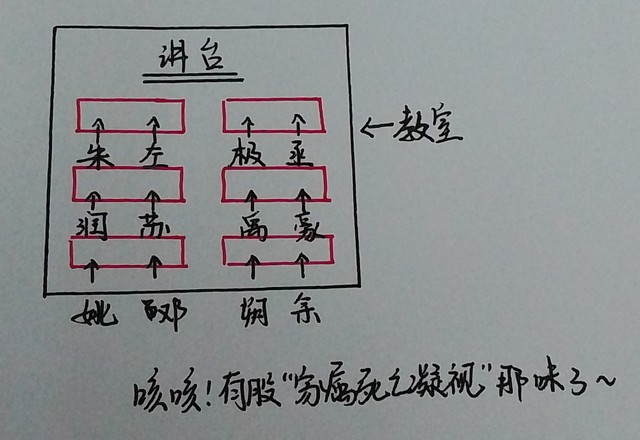 讲台
←教室
朱 左 极 丞
润 苏 禹 豪
姚 邓 朔 余
咳咳！有股“家属死亡凝视”那味了～